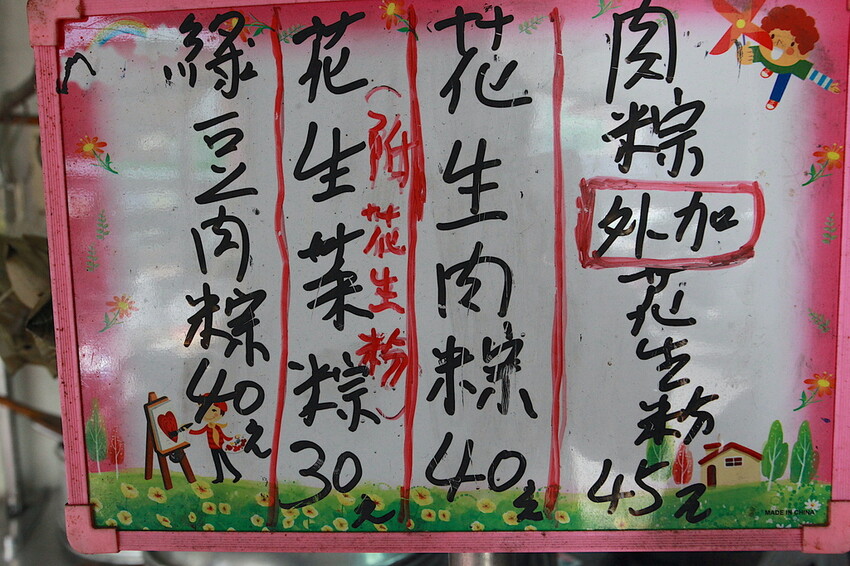 肉粽外加花生粉45元
花生肉粽40元
花生菜粽30元
(附花生粉)
綠豆肉粽40元
MADE IN CHINA